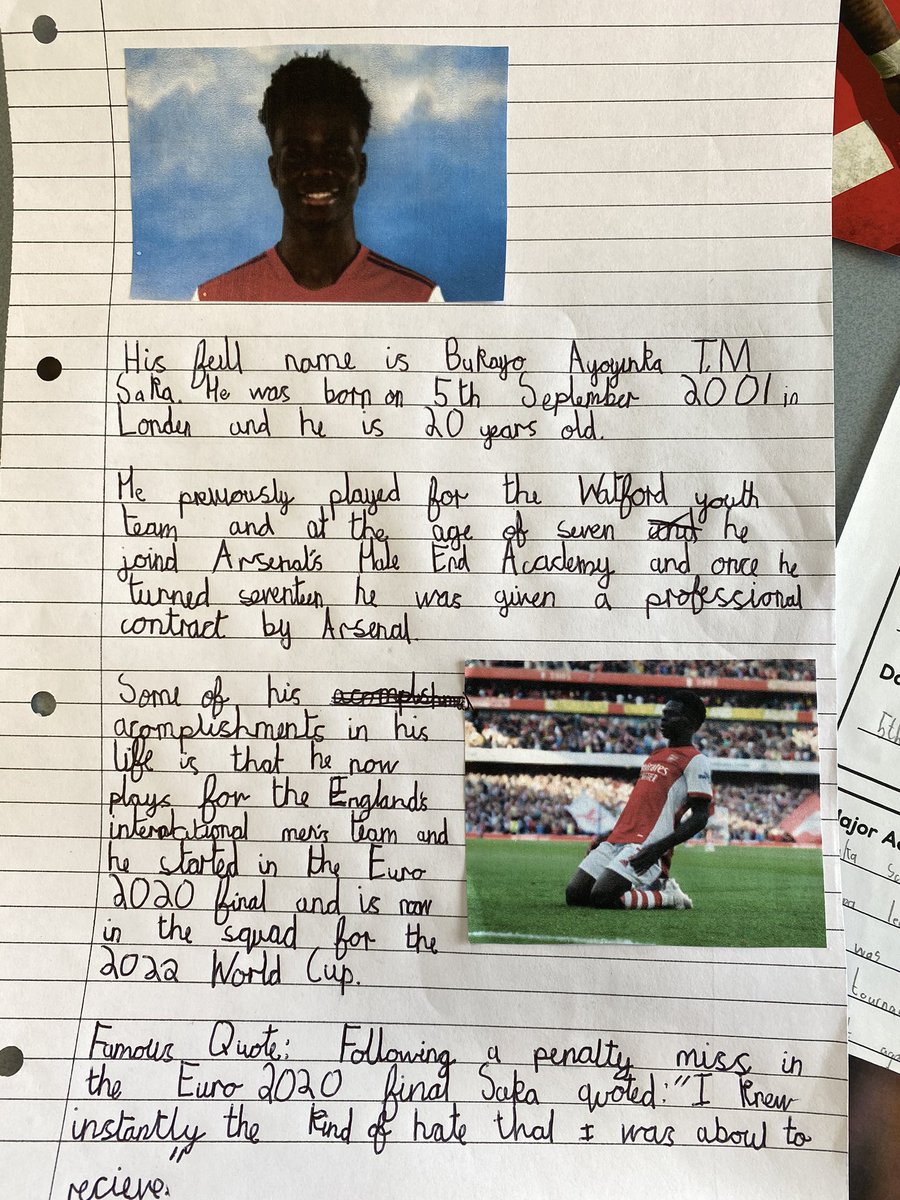 His full name is Bukayo Ayoyinka T.M
Saka. He was born on 5th September 2001 in
London and he is 20 years old.
He previously played for the Watford youth
team and at the age of seven and he
joind Arsenal's Hale End Academy and once he
turned seventeen he was given a professional
contract by Arsenal.
Some of his acomplishme
acomplishments in his
life is that he now
plays for the England's
international men's team and
he started in the Euro
2020 final and is now
in the squad for the
2022 World Cup.
Famous Quote: Following a penalty miss in
the Euro 2020 final Saka quoted: "I knew
instantly the kind of hate that I was about to
recieve."
Emirates
5th
was